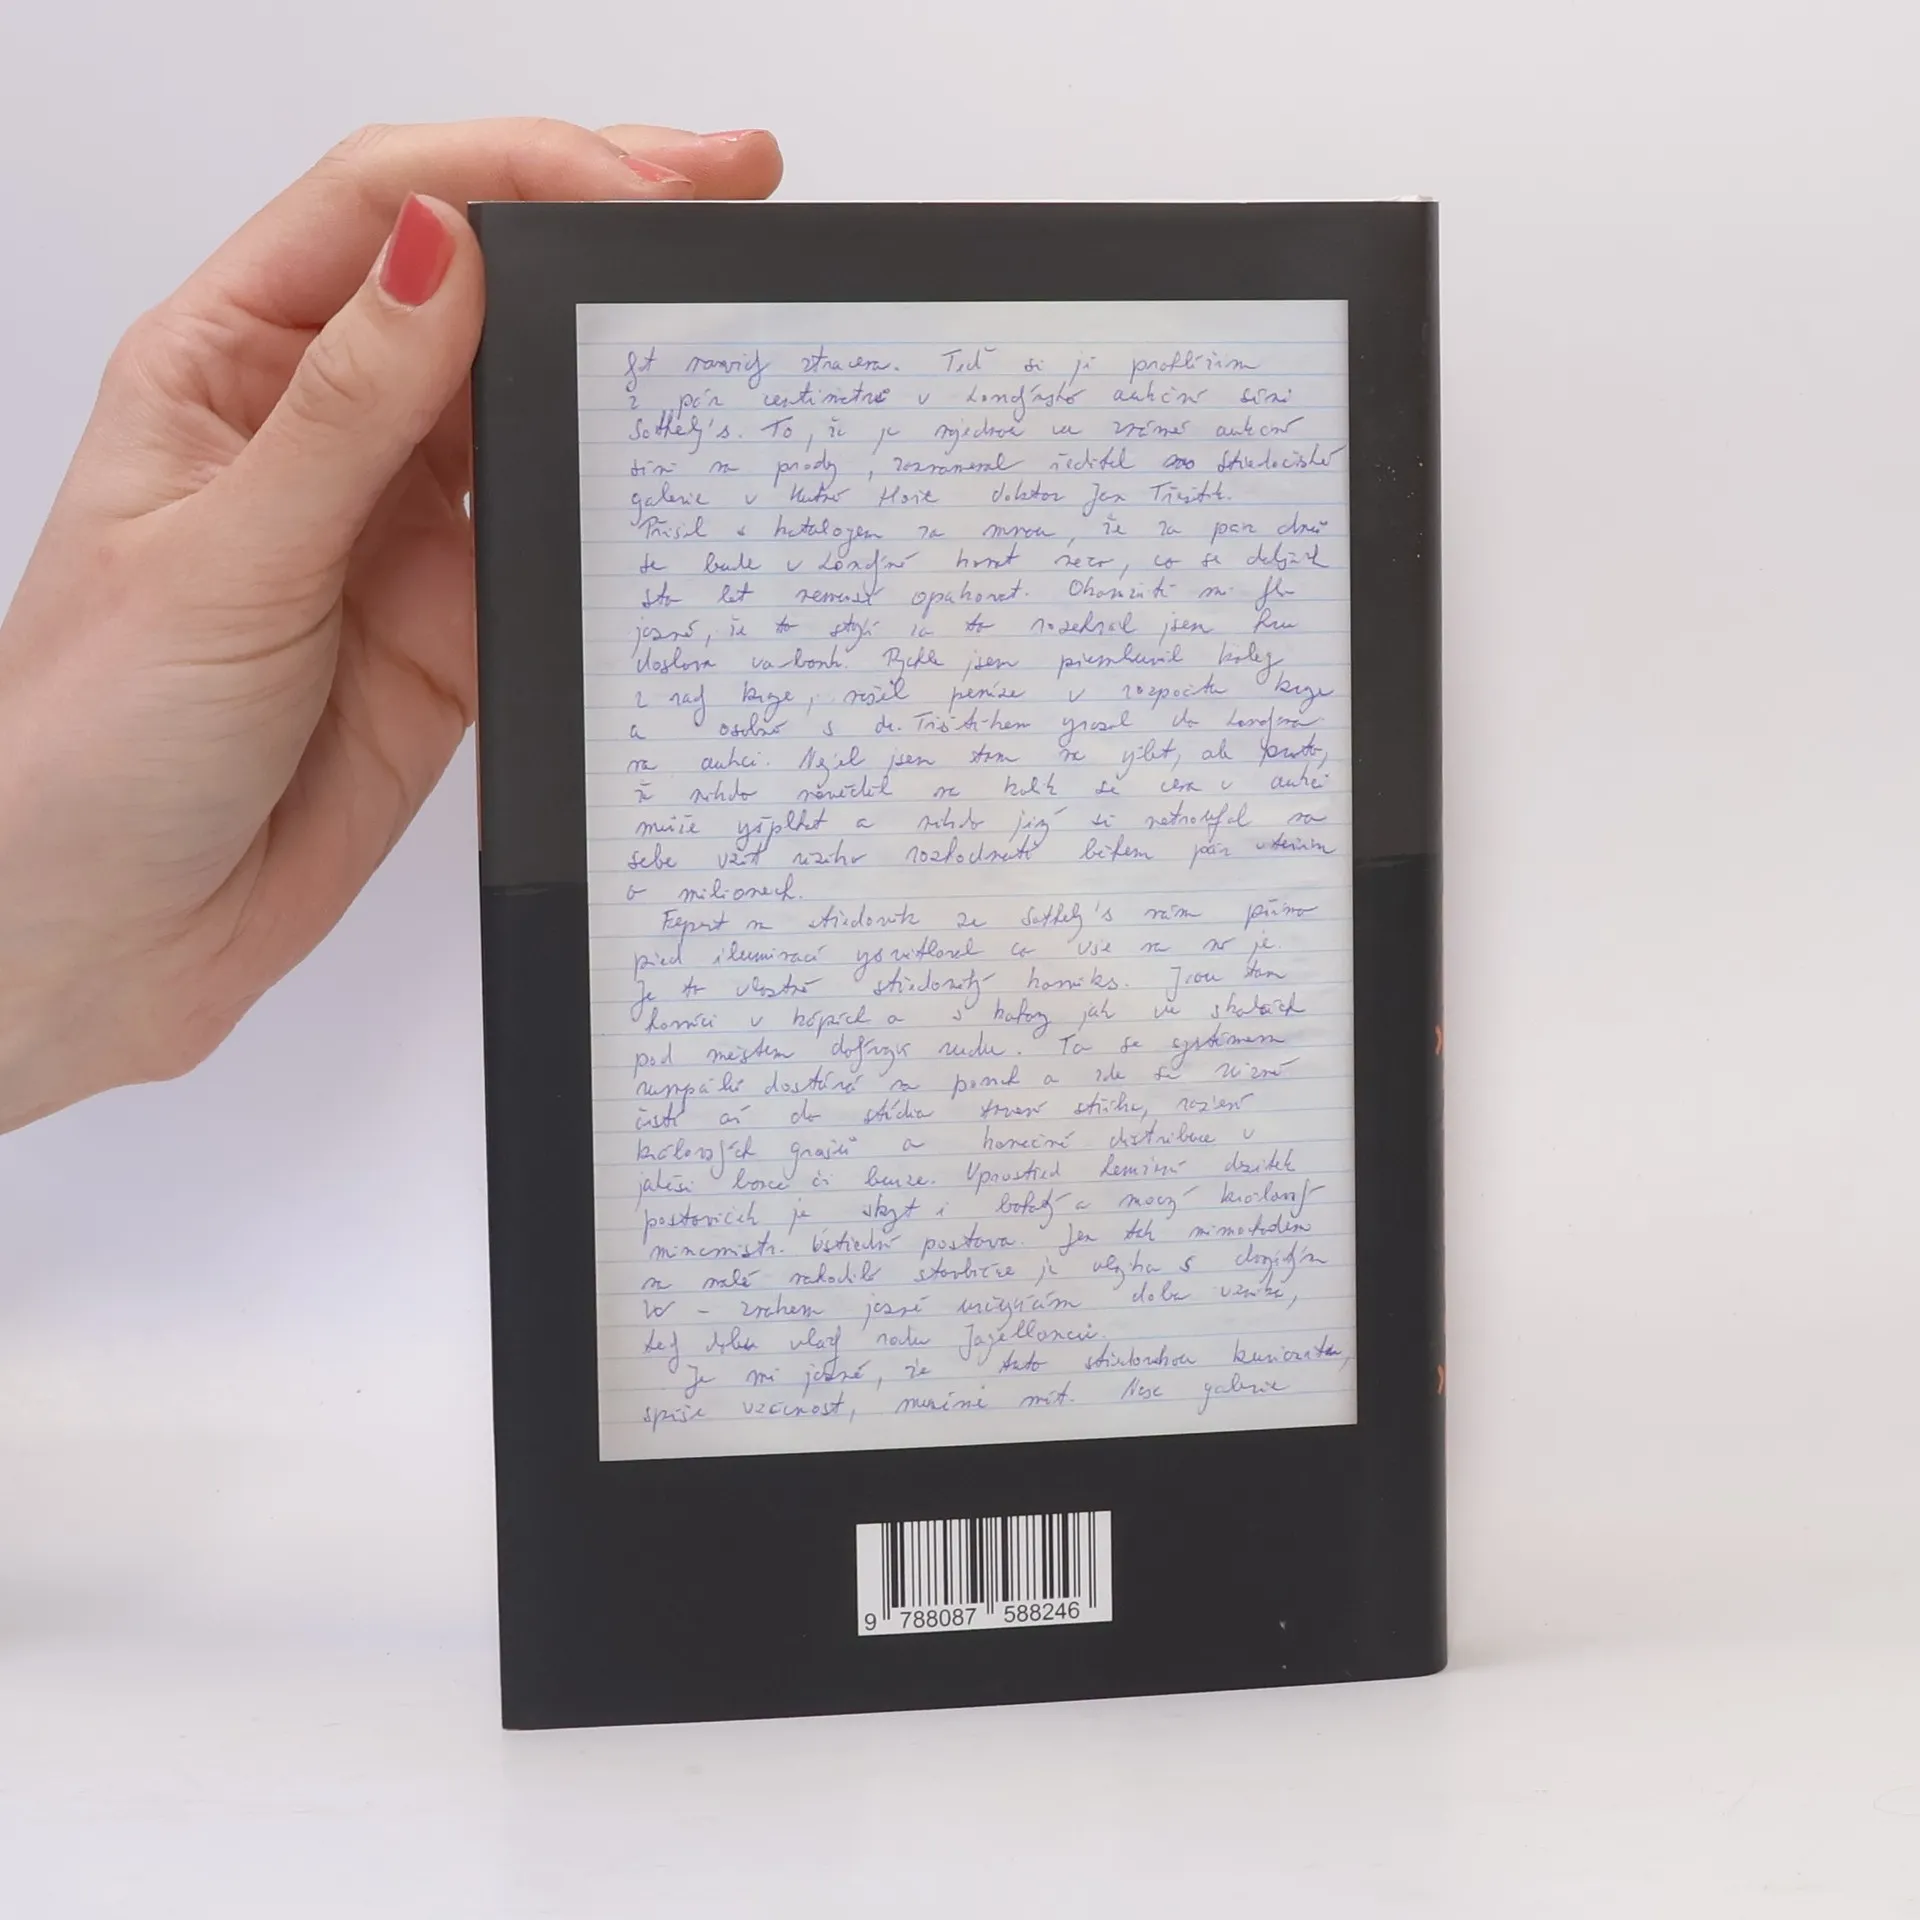 být navždy ztracena. Teď si ji prohlížím
z pár centimetrů v Londýnské aukční síni
Sotheby's. To, že je najednou ve známé aukční
síni na prodej, zaznamenal ředitel Středočeské
galerie v Kutné Hoře doktor Jan Třeštík.
Přišel s katalogem za mnou, že za pár dnů
se bude v Londýně konat něco, co se dalších
sto let nemusí opakovat. Okamžitě mi bylo
jasné, že to stojí za to rozehrál jsem hru
doslova va-bank. Rychle jsem přemluvil kolegy
z rady kraje, našel peníze v rozpočtu kraje
a osobně s dr. Třeštíkem vyrazil do Londýna
na aukci. Nejel jsem tam na výlet, ale proto,
že nikdo nevěděl na kolik se cena v aukci
může vyšplhat a nikdo jiný si netroufal na
sebe vzít riziko rozhodnutí během pár vteřin
o milionech.
Expert na středověk ze Sotheby's nám přímo
před iluminací vysvětloval co vše na ní je.
Je to vlastně středověký komiks. Jsou tam
horníci v kápích a jak ve skalách
pod městem dobývají rudu. Ta se systémem
rumpálů dostává na povrch a zde se různě
čistí až do stádia tavení stříbra, ražení
královských grošů a konečné distribuce v
jakési burze. Uprostřed hemžení desítek
postaviček je skryt i bohatý a mocný královský
mincmistr. Ústřední postava. Jen tak mimochodem
na malé nahodilé stavbičce je vlajka s
W - znakem jasně určujícím doba vzniku,
tedy doba vlády rodu Jagellonců.
Je mi jasné, že tuto středověkou kuriozitu,
spíše vzácnost, musíme mít. Nese galerie
9 788087 588246